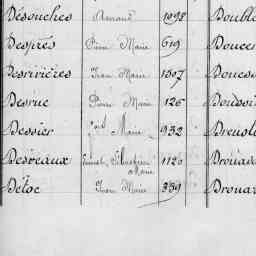 Désouches Armand 1098 Double
Després Pierre Marie 619 Doucen
Desrivières Jean Marie 1507 Douess
Desruc Pierre Marie 126
Dessier Marie 932 Dreusl
Desveaux Sébastien 1120 Drouas
Marie
Détoc Jean Marie 339 Drouar